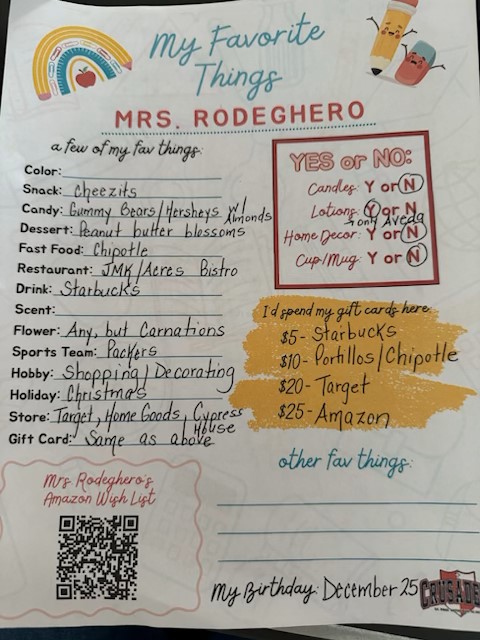 My Favorite
Things
MRS. RODEGHERO
a few of my fav things:
Color:
Snack: Cheezits
Candy: Gummy Bears/Hersheys w/ Almonds
Dessert: Peanut butter blossoms
Fast Food: Chipotle
Restaurant: JMK/Acres Bistro
Drink: Starbucks
Scent:
Flower: Any, but Carnations
Sports Team: Packers
Hobby: Shopping/Decorating
Holiday: Christmas
Store: Target, Home Goods, Cypress House
Gift Card: Same as above
YES or NO:
Candles: Y or N
Lotions: Y or N
only Aveda
Home Decor: Y or N
Cup/Mug: Y or N
I'd spend my gift cards here:
$5- Starbucks
$10- Portillos/Chipotle
$20- Target
$25- Amazon
other fav things:
Mrs. Rodeghero's
Amazon Wish List
My Birthday: December 25